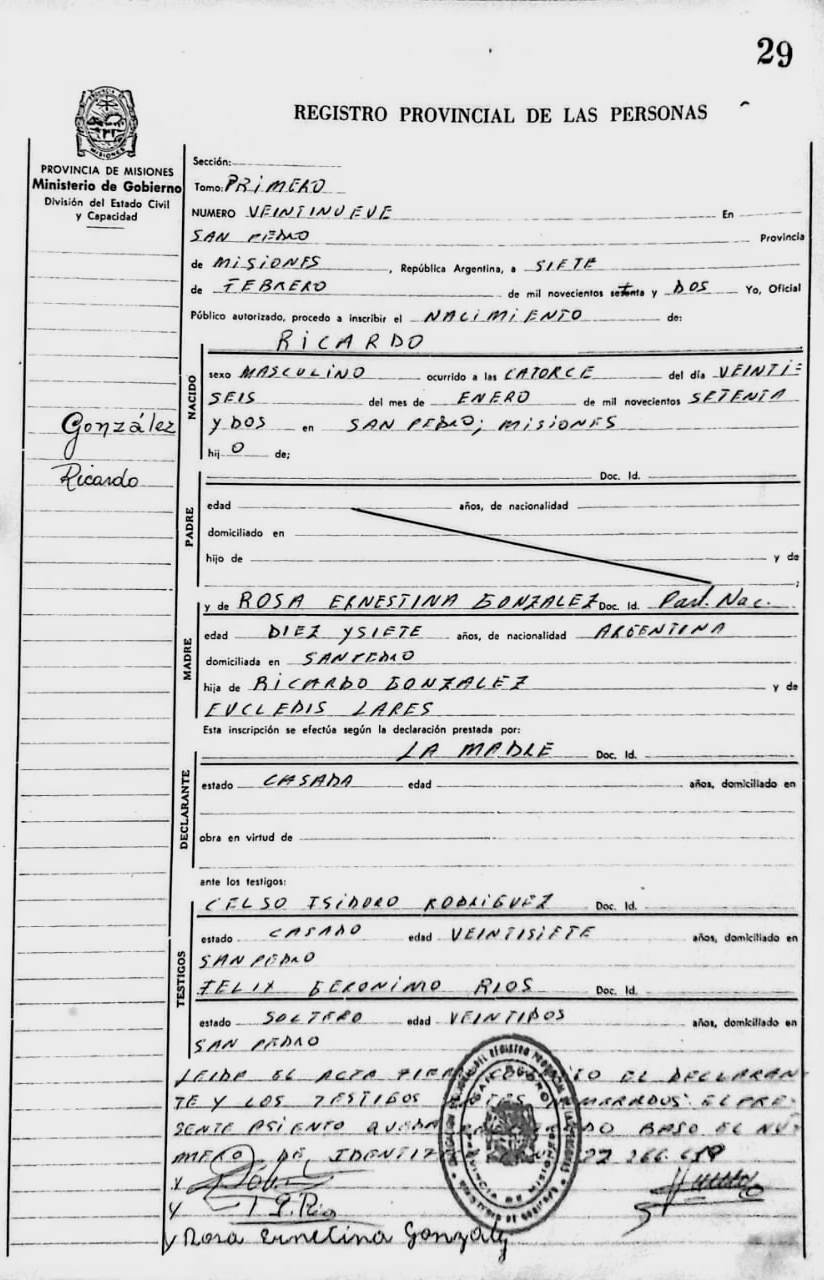 29
REGISTRO PROVINCIAL DE LAS PERSONAS
MISIONES
PROVINCIA DE MISIONES
Ministerio de Gobierno
División del Estado Civil
y Capacidad
González
Ricardo
Sección:
Tomo: PRIMERO
NUMERO VEINTINUEVE En
SAN PEDRO Provincia
de MISIONES, República Argentina, a SIETE
de FEBRERO de mil novecientos setenta y DOS Yo, Oficial
Público autorizado, procedo a inscribir el NACIMIENTO de:
RICARDO
NACIDO
sexo MASCULINO ocurrido a las CATORCE del día VEINTI=
SEIS del mes de ENERO de mil novecientos SETENTA
Y DOS en SAN PEDRO; MISIONES
hij O de;
Doc. Id.
PADRE
edad años, de nacionalidad
domiciliado en
hijo de y de
;
MADRE
y de ROSA ERNESTINA GONZALEZ Doc. Id. Part. Nac.
edad DIEZ YSIETE años, de nacionalidad ARGENTINA
domiciliada en SAN PEDRO
hija de RICARDO GONZALEZ y de
EUCLEDIS LARES
Esta inscripción se efectúa según la declaración prestada por:
LA MADRE Doc. Id.
DECLARANTE
estado CASADA edad años, domiciliado en
obra en virtud de
ante los testigos:
TESTIGOS
CELSO ISIDORO RODRIGUEZ Doc. Id.
estado CASADO edad VEINTISIETE años, domiciliado en
SAN PEDRO
FELIX GERONIMO RIOS Doc. Id.
estado SOLTERO edad VEINTIDOS años, domiciliado en
SAN PEDRO
LEIDA EL ACTA EL DECLARAN-
TE Y LOS TESTIGOS EL PRE-
SENTE ASIENTO QUEDA BAJO EL NÚ-
MERO DE
SAN PEDRO
PROVINCIA DE MISIONES
Y
Y
y Rosa Ernestina González